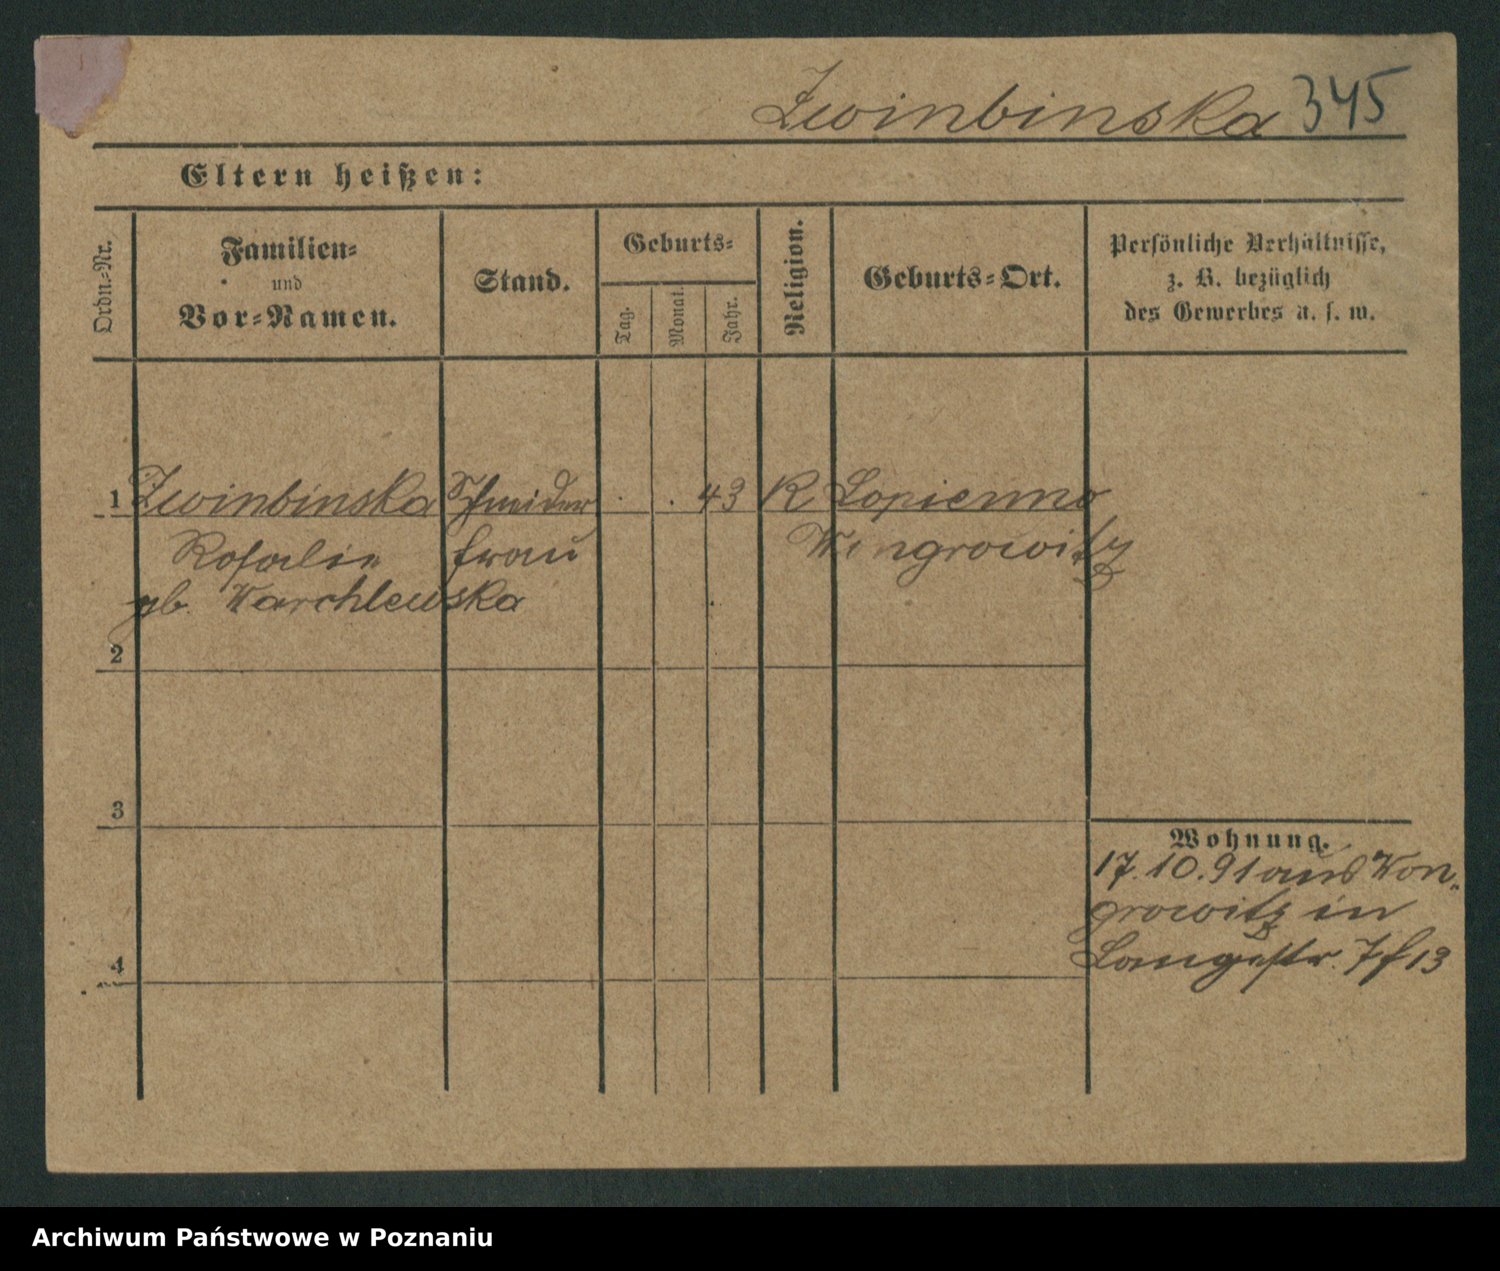 Zwinbinska 345
Eltern heißen:
Ordn.-Nr.
Familien-
und
Vor-Namen.
Stand.
Geburts-
Tag.
Monat.
Jahr.
Religion.
Geburts-Ort.
Persönliche Verhältnisse,
z. B. bezüglich
des Gewerbes u. s. w.
1 Zwinbinska Schneider . . 43 R Lopienno
Rosalie frau Wongrowitz
gb. Warchlewska
2
3
4
Wohnung.
17.10.91 aus Won-
growitz in
Langestr. 7 f 13
Archiwum Państwowe w Poznaniu